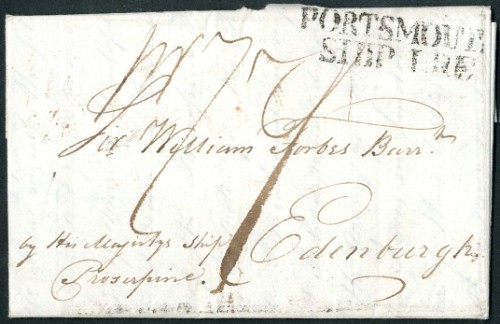 PORTSMOUTH
SHIP LRE
Sir William Forbes Barr.t
by His Majestys Ship Edenburgh
Proserpine.